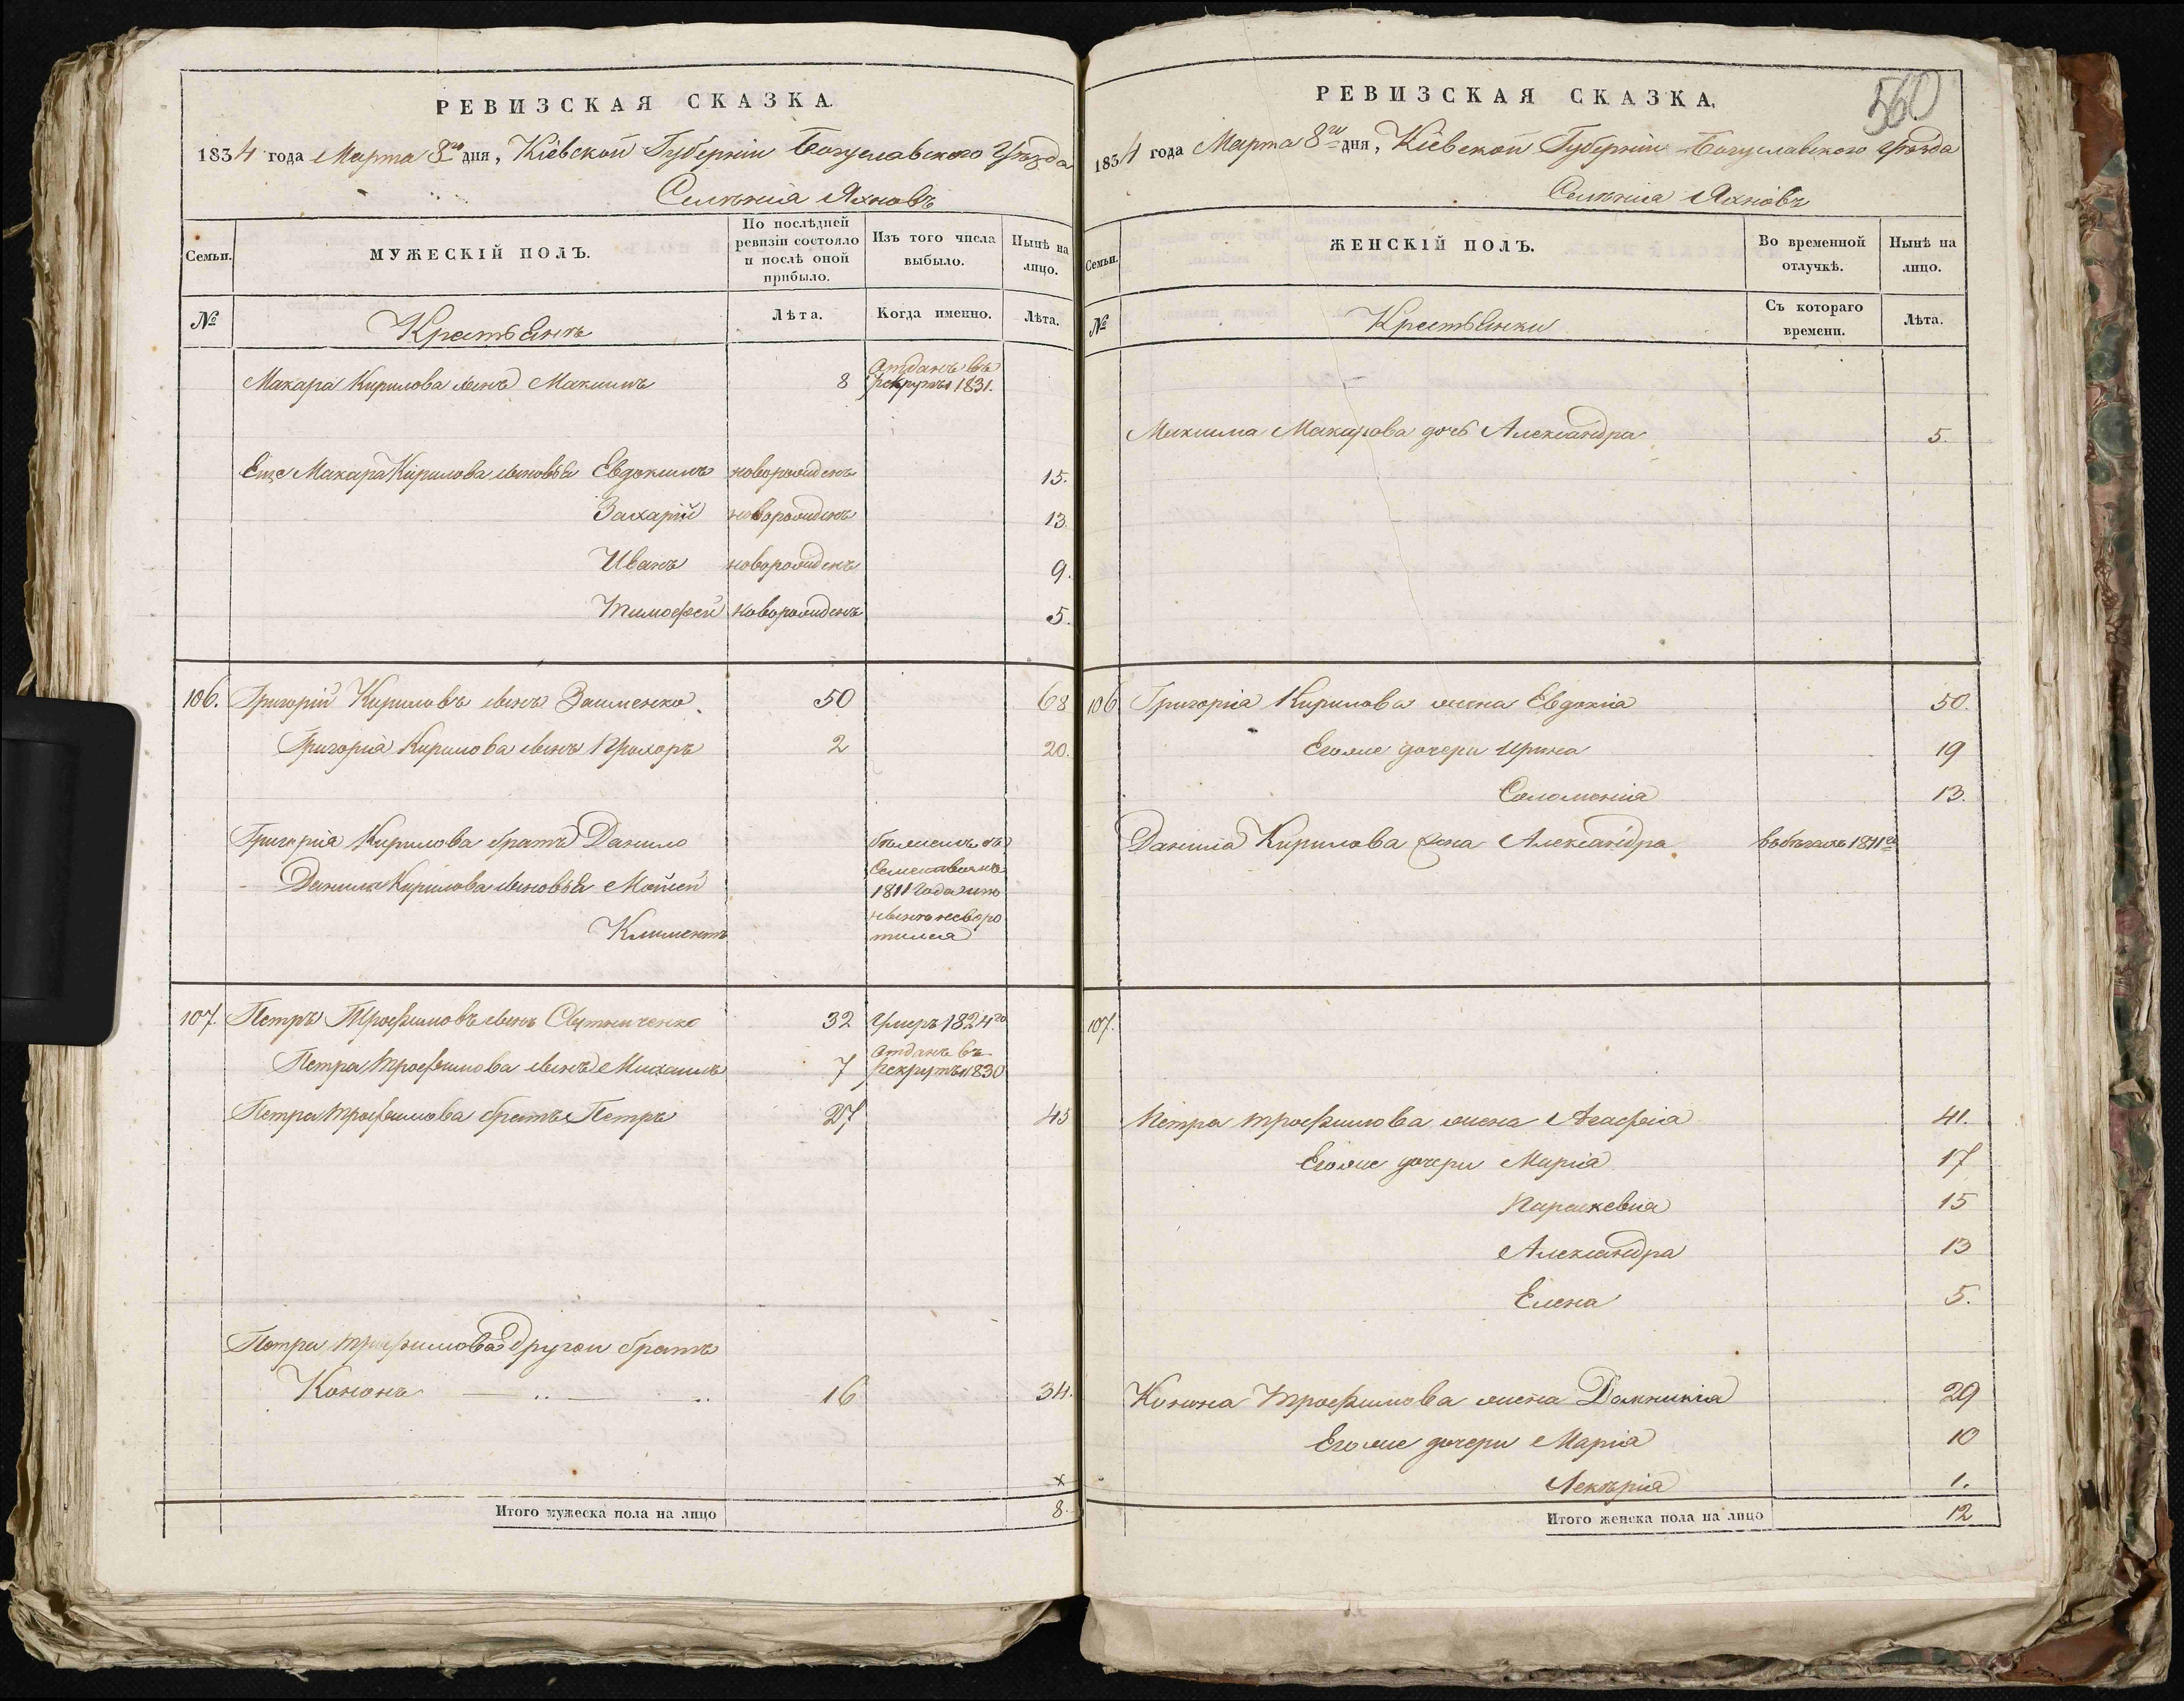 РЕВИЗСКАЯ СКАЗКА.
1834 года Марта 8го дня, Кіевской Губерніи Богуславскаго Уѣзда
Селенія Яхновъ
Семьи.
МУЖЕСКІЙ ПОЛЪ.
По послѣдней ревизіи состояло и послѣ оной прибыло.
Изъ того числа выбыло.
Нынѣ на лицо.
№
Крестьянъ
Лѣта.
Когда именно.
Лѣта.
Макара Кирилова сынъ Максимъ 8 Отданъ въ рекруты 1831.
Еще Макара Кирилова сыновья Евдокимъ новорожденъ 15.
Захарій новорожденъ 13.
Иванъ новорожденъ 9.
Тимофей новорожденъ 5.
106. Григорій Кириловъ сынъ 50 68
Григорія Кирилова сынъ Прохоръ 2 20.
Григорія Кирилова братъ Данило
Данила Кирилова сыновья Мойсей
Климентъ
бѣжалъ съ
Семействомъ
1811 года и по
нынѣ не воро
тился
107. Петръ Трофимовъ сынъ 32 Умеръ 1824го
Петра Трофимова сынъ Михаилъ 7 Отданъ въ рекруты 1830
Петра Трофимова братъ Петръ 27 45
Петра Трофимова другой братъ
Кононъ 16 34.
Итого мужеска пола на лицо 8.
560
РЕВИЗСКАЯ СКАЗКА.
1834 года Марта 8го дня, Кіевской Губерніи Богуславскаго Уѣзда
Селенія Яхновъ
Семьи.
ЖЕНСКІЙ ПОЛЪ.
Во временной отлучкѣ.
Нынѣ на лицо.
№
Крестьянки
Съ котораго времени.
Лѣта.
Максима Макарова дочь Александра 5.
106 Григорія Кирилова жена Евдокія 50.
Егоже дочери Ирина 19
Соломонія 13.
Данила Кирилова жена Александра въ бѣгахъ 1811го
107.
Петра Трофимова жена Агафія 41.
Егоже дочери Марія 17
Параскевія 15
Александра 13
Елена 5.
Конона Трофимова жена Домникія 29
Егоже дочери Марія 10
1.
Итого женска пола на лицо 12